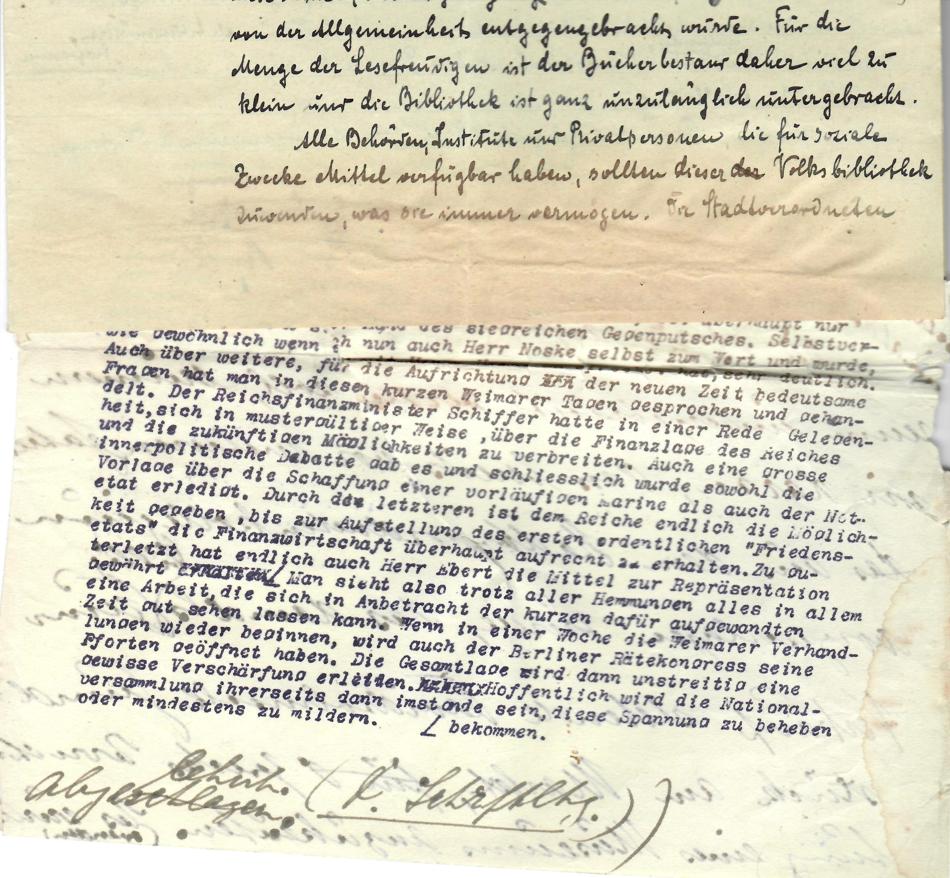 von der Allgemeinheit entgegengebracht wurde. Für die
Menge der Lesefreudigen ist der Bücherbestand daher viel zu
klein und die Bibliothek ist ganz unzulänglich untergebracht.
Alle Behörden, Institute und Privatpersonen die für soziale
Zwecke Mittel verfügbar haben, sollten dieser der Volksbibliothek
zuwenden, was sie immer vermögen. Die Stadtverordneten
des siegreichen Gegenputsches. Selbstver-
wie gewöhnlich wenn ih nun auch Herr Noske selbst zum Wort und wurde,
sehr deutlich.
Auch über weitere, für die Aufrichtung der neuen Zeit bedeutsame
Fragen hat man in diesen kurzen Weimarer Tagen gesprochen und gehan-
delt. Der Reichsfinanzminister Schiffer hatte in einer Rede Gelegen-
heit,sich in mustergültiger Weise ,über die Finanzlage des Reiches
und die zukünftigen Möglichkeiten zu verbreiten. Auch eine grosse
innerpolitische Debatte gab es und schliesslich wurde sowohl die
Vorlage über die Schaffung einer vorläufigen Marine als auch der Not-
etat erledigt. Durch den letzteren ist dem Reiche endlich die Möglich-
keit gegeben ,bis zur Aufstellung des ersten ordentlichen "Friedens-
etats" die Finanzwirtschaft überhaupt aufrecht zu erhalten.Zu gu-
terletzt hat endlich auch Herr Ebert die Mittel zur Repräsentation
gewährt erhalten/ Man sieht also trotz aller Hemmungen alles in allem
eine Arbeit,die sich in Anbetracht der kurzen dafür aufgewandten
Zeit gut sehen lassen kann. Wenn in einer Woche die Weimarer Verhand-
lungen wieder beginnen, wird auch der Berliner Rätekongress seine
Pforten geöffnet haben. Die Gesamtlage wird dann unstreitig eine
gewisse Verschärfung erleiden. Hoffentlich wird die National-
versammlung ihrerseits dann imstande sein,diese Spannung zu beheben
oder mindestens zu mildern.
/ bekommen.
abgeschlagen